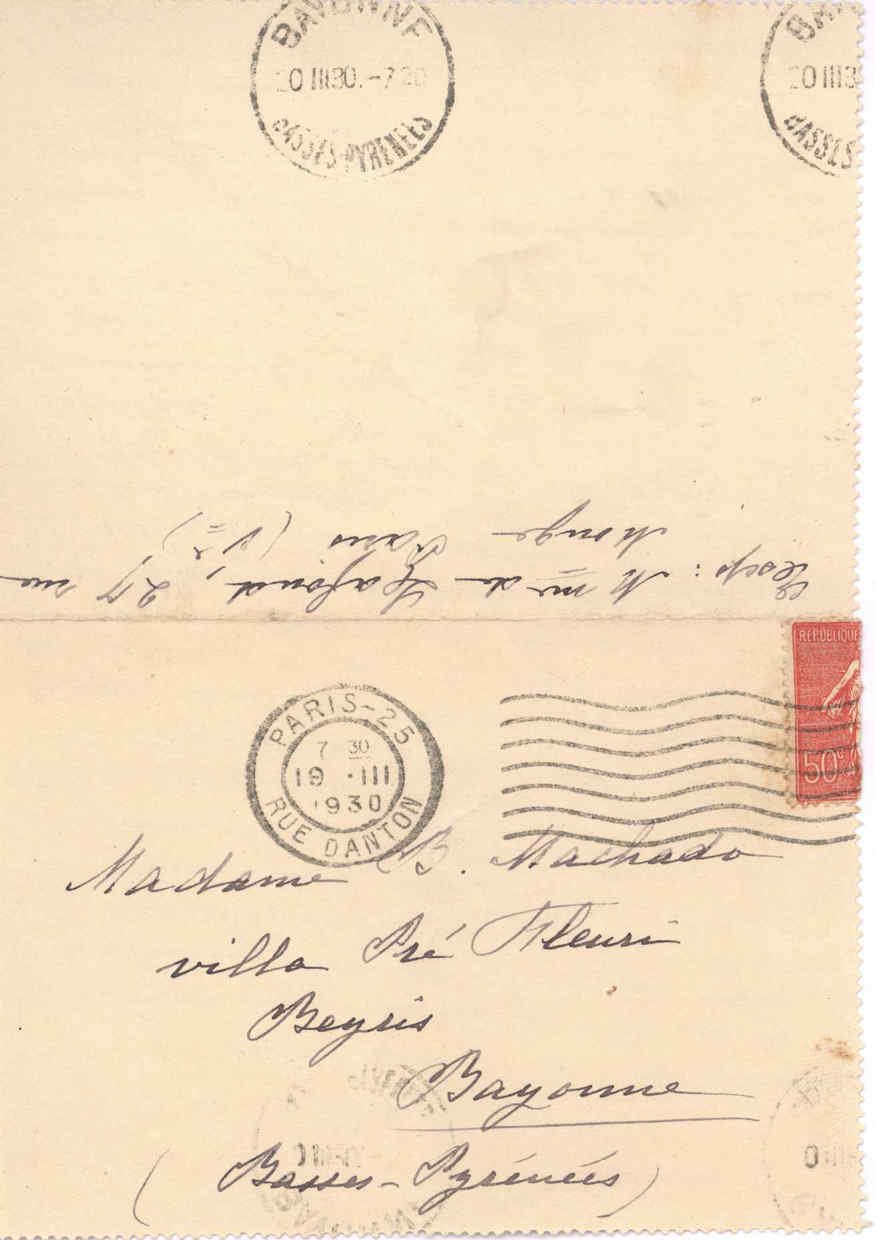 BAYONNE
20 III 30.-7 30
BASSES-PYRENEES
20 III 3
BASSES
Exp: Mme de Lafond, 27 rue
Monge Paris (Ve)
REPUBLIQUE
50c
PARIS-25
7 30
19 .III
1930
RUE DANTON
Madame B. Machado
villa Pré Fleuri
Beyris
Bayonne
(Basses-Pyrénées)